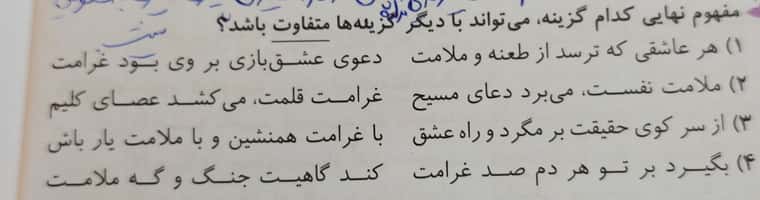 مفهوم نهایی کدام گزینه، می‌تواند با دیگر گزینه‌ها متفاوت باشد؟
۱) هر عاشقی که ترسد از طعنه و ملامت دعوی عشق‌بازی بر وی بود غرامت
۲) ملامت نفست، می‌برد دعای مسیح غرامت قلمت، می‌کشد عصای کلیم
۳) از سر کوی حقیقت بر مگرد و راه عشق با غرامت همنشین و با ملامت یار باش
۴) بگیرد بر تو هر دم صد غرامت کند گاهیت جنگ و گه ملامت